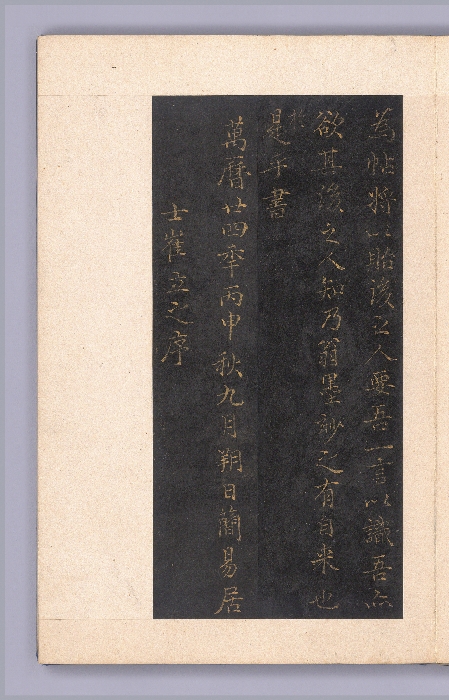 為帖將以貽後之人要吾一言以識吾亦
欲其後之人知乃翁墨妙之有自来也
於是乎書
萬曆廿四年丙申秋九月朔日簡易居
士崔立之序